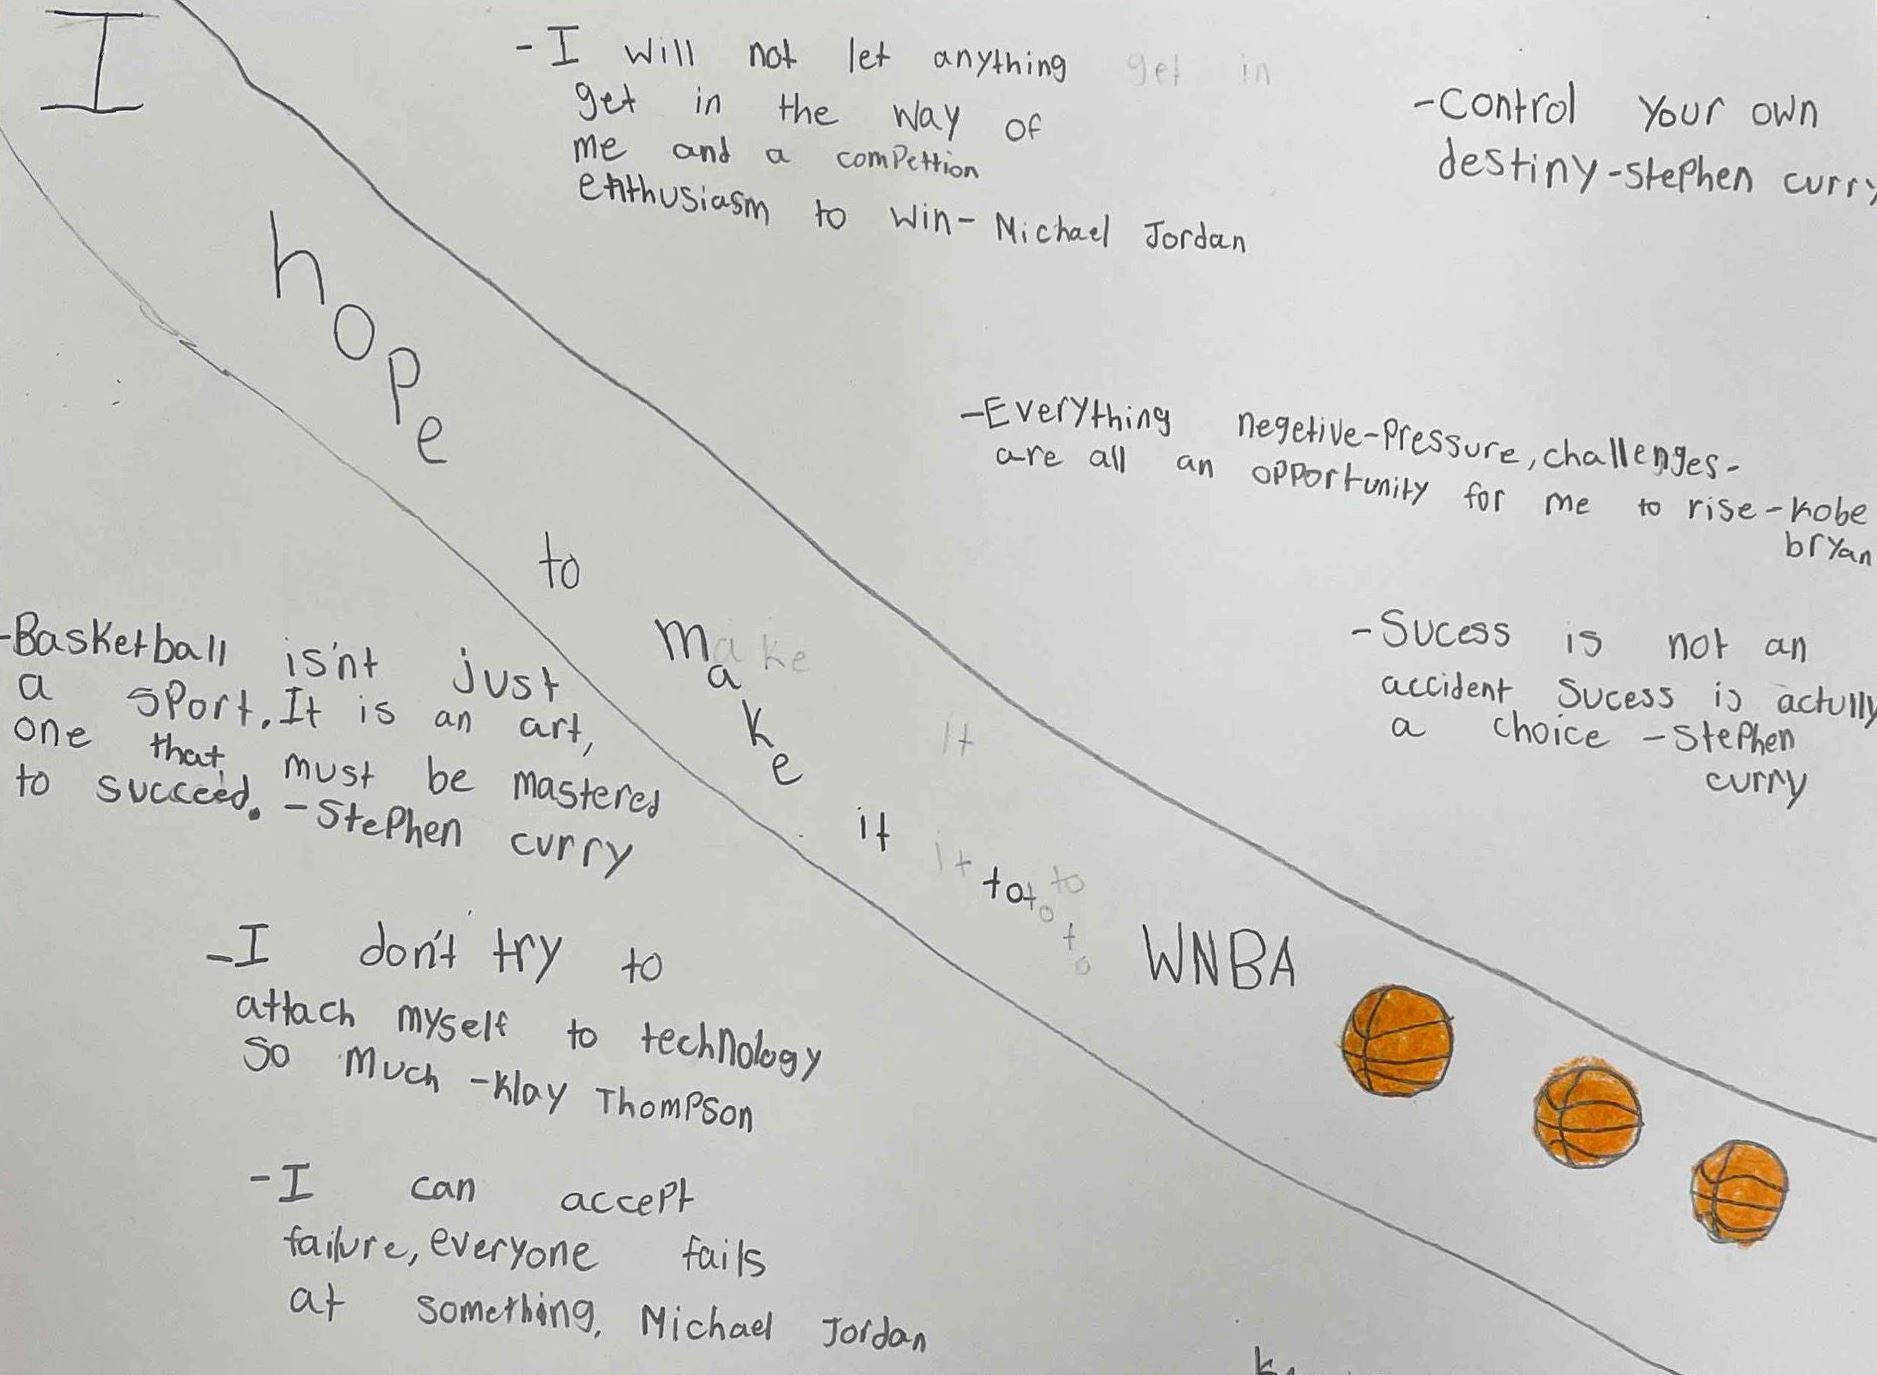 I hope to make it to WNBA
- I will not let anything get in
get in the way of
me and a compettion
enthusiasm to win - Michael Jordan
- Control your own
destiny - Stephen curry
- Everything negetive - Pressure, challenges -
are all an opportunity for me to rise - Kobe
bryan
- Sucess is not an
accident sucess is actully
a choice - Stephen
curry
- Basketball is'nt just
a sport. It is an art,
one that must be mastered
to succeed. - Stephen curry
- I don't try to
attach myself to technology
so much - Klay Thompson
- I can accept
failure, everyone fails
at something. Michael Jordan